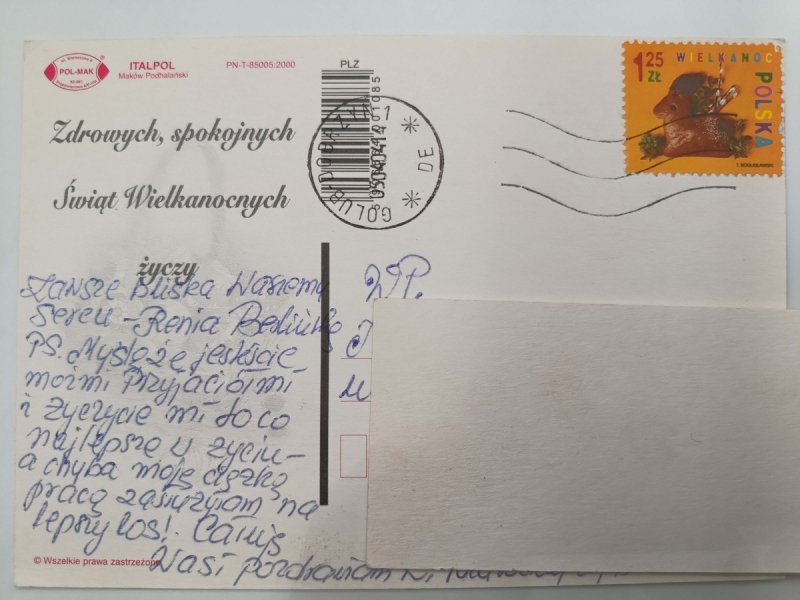 POL-MAK
ITALPOL
Maków Podhalański
PN-T-85005:2000
PLZ
1 25
ZŁ
WIELKANOC
POLSKA
T. BOGUSŁAWSKI
GOLUB-DOBRZYŃ 1
DE
Zdrowych, spokojnych
Świąt Wielkanocnych
życzy
Zawsze Bliska Waszemu
Sercu - Renia
PS. Myślę że jesteście
moimi Przyjaciółmi
i życzycie mi to co
najlepsze w życiu -
a chyba moją ciężką
pracą zasłużyłam na
lepszy los!
Was i pozdrawiam
W.P.
© Wszelkie prawa zastrzeżone